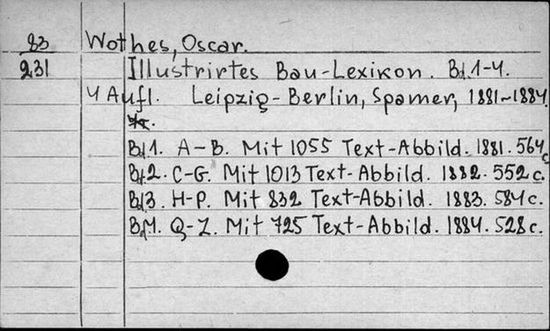 83 Wothes, Oscar.
231 Illustrirtes Bau-Lexikon. Bd.1-4.
4 Aufl. Leipzig-Berlin, Spamer, 1881-1884
Bd1. A-B. Mit 1055 Text-Abbild. 1881. 564c
Bd2. C-G. Mit 1013 Text-Abbild. 1882. 552c.
Bd3. H-P. Mit 832 Text-Abbild. 1883. 584c.
Bd4. Q-Z. Mit 725 Text-Abbild. 1884. 528c.